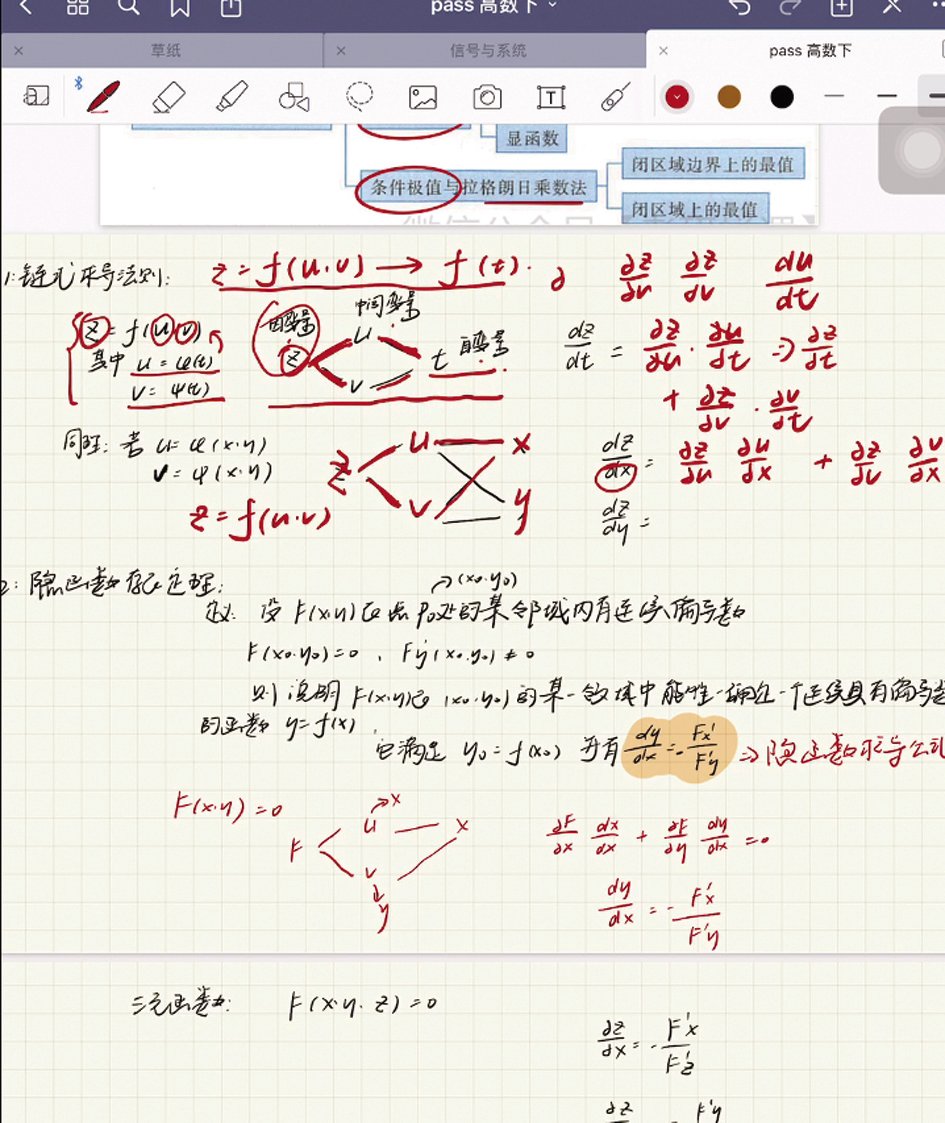 pass 高数下
草纸
信号与系统
pass 高数下
显函数
条件极值与拉格朗日乘数法
闭区域边界上的最值
闭区域上的最值
1:链式求导法则: z = f(u·v) → f(t)· ∂ ∂z/∂u ∂z/∂v du/dt
z = f(u·v)
其中 u = φ(t)
v = ψ(t)
因变量
中间变量
z u v t 自变量
dz/dt = ∂z/∂u · ∂u/∂t ⇒ ∂z/∂t
+ ∂z/∂v · ∂v/∂t
同理: 若 u = φ(x·y)
v = φ(x·y)
z = f(u·v)
z u v x y
dz/dx = ∂z/∂u ∂u/∂x + ∂z/∂v ∂v/∂x
dz/dy =
2: 隐函数存在定理:
→(x0·y0)
设 F(x·y)在点P0处的某邻域内有连续偏导数
F(x0·y0)=0 , F'y(x0·y0) ≠ 0
则说明 F(x·y)在 (x0·y0)的某一邻域中能唯一确定一个连续具有偏导
的函数 y = f(x) ,
它满足 y0 = f(x0) 并有 dy/dx = - Fx'/F'y ⇒ 隐函数求导公式
F(x·y) = 0
F u → x x
v ↓ y
∂F/∂x dx/dx + ∂F/∂y dy/dx = 0
dy/dx = - F'x/F'y
三元函数: F(x·y·z) = 0
∂z/∂x = - F'x/F'z
∂z F'y